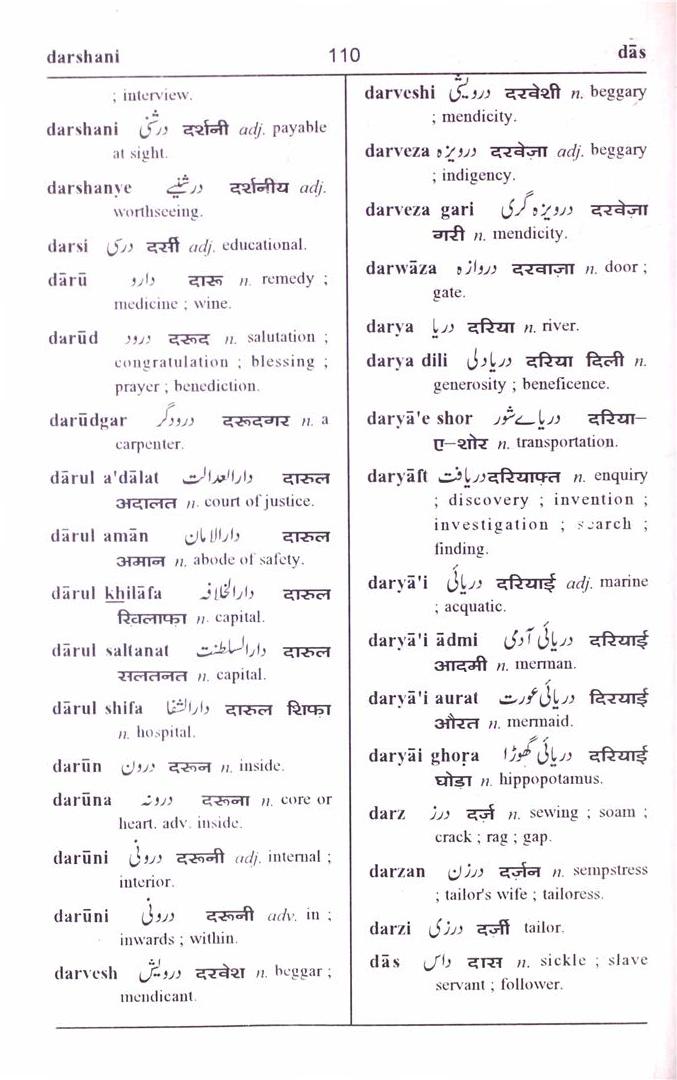 darshani 110 dās
; interview.
darshani درشنی दर्शनी adj. payable
at sight.
darshanye درشنیے दर्शनीय adj.
worthseeing.
darsi درسی दर्सी adj. educational.
dārū دارو दारू n. remedy ;
medicine ; wine.
darūd درود दरूद n. salutation ;
congratulation ; blessing ;
prayer ; benediction.
darūdgar درودگر दरूदगर n. a
carpenter.
dārul a'dālat دارالعدالت दारुल
अदालत n. court of justice.
dārul amān دارالامان दारुल
अमान n. abode of safety.
dārul khilāfa دارالخلافہ दारुल
खिलाफा n. capital.
dārul saltanat دارالسلطنت दारुल
सलतनत n. capital.
dārul shifa دارالشفا दारुल शिफा
n. hospital.
darūn درون दरून n. inside.
darūna درونہ दरूना n. core or
heart. adv. inside.
darūni درونی दरूनी adj. internal ;
interior.
darūni درونی दरूनी adv. in ;
inwards ; within.
darvesh درویش दरवेश n. beggar ;
mendicant.
darveshi درویشی दरवेशी n. beggary
; mendicity.
darveza درویزہ दरवेज़ा adj. beggary
; indigency.
darveza gari درویزہ گری दरवेज़ा
गरी n. mendicity.
darwāza دروازہ दरवाज़ा n. door ;
gate.
darya دریا दरिया n. river.
darya dili دریا دلی दरिया दिली n.
generosity ; beneficence.
daryā'e shor دریاے شور दरिया–
ए–शोर n. transportation.
daryāft دریافت दरियाफ्त n. enquiry
; discovery ; invention ;
investigation ; search ;
finding.
daryā'i دریائی दरियाई adj. marine
; acquatic.
daryā'i ādmi دریائی آدمی दरियाई
आदमी n. merman.
daryā'i aurat دریائی عورت दिरयाई
औरत n. mermaid.
daryāi ghoṛa دریائی گھوڑا दरियाई
घोड़ा n. hippopotamus.
darz درز दर्ज़ n. sewing ; soam ;
crack ; rag ; gap.
darzan درزن दर्ज़न n. sempstress
; tailor's wife ; tailoress.
darzi درزی दर्ज़ी tailor.
dās داس दास n. sickle ; slave
servant ; follower.